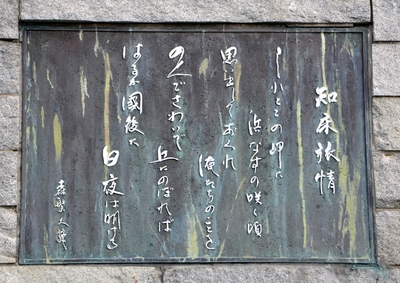 知床旅情
しれとこの岬に
浜なすの咲く頃
思い出しておくれ
俺たちのことを
のんでさわいで
丘にのぼれば
はるか國後に
白夜は明ける
森繁久彌